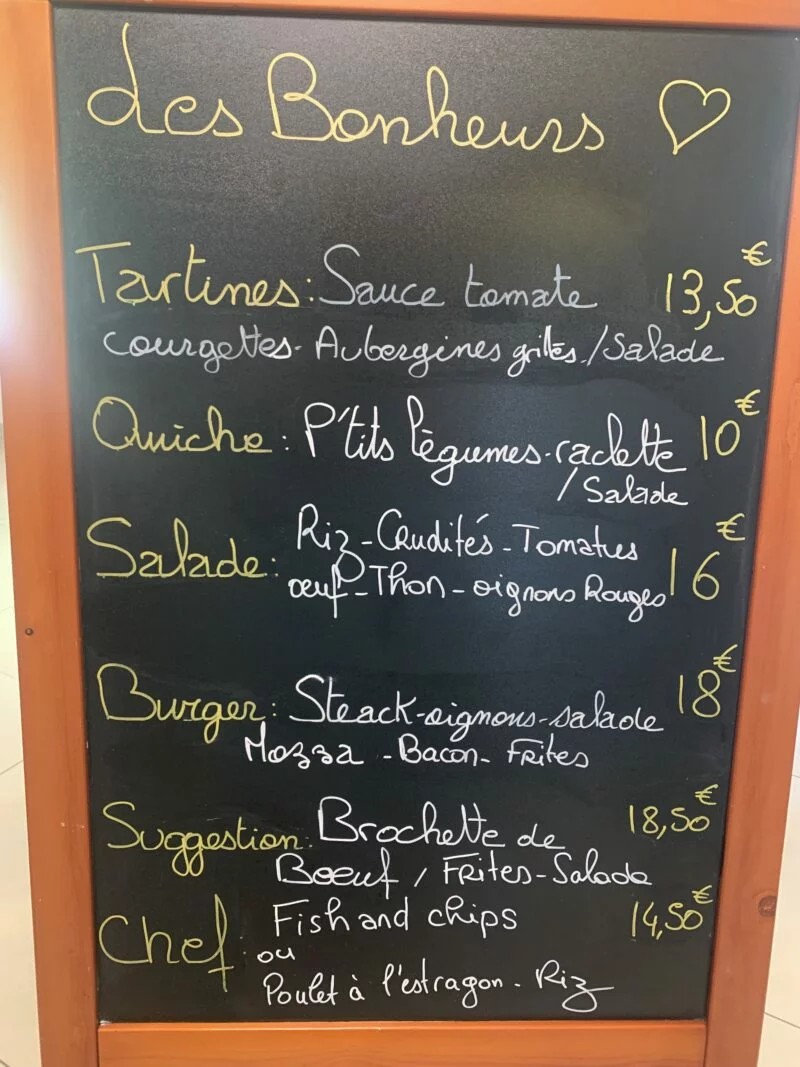 Les Bonheurs ♡
Tartines: Sauce tomate 13,50€
courgettes- Aubergines grillés/Salade
Quiche: P'tits légumes-raclette 10€
/Salade
Salade: Riz-Crudités-Tomates 16€
œuf-Thon-oignons Rouges
Burger: Steack-oignons-salade 18€
Mozza -Bacon- Frites
Suggestion: Brochette de 18,50€
Boeuf / Frites-Salade
Chef: Fish and chips 14,50€
ou
Poulet à l'estragon- Riz